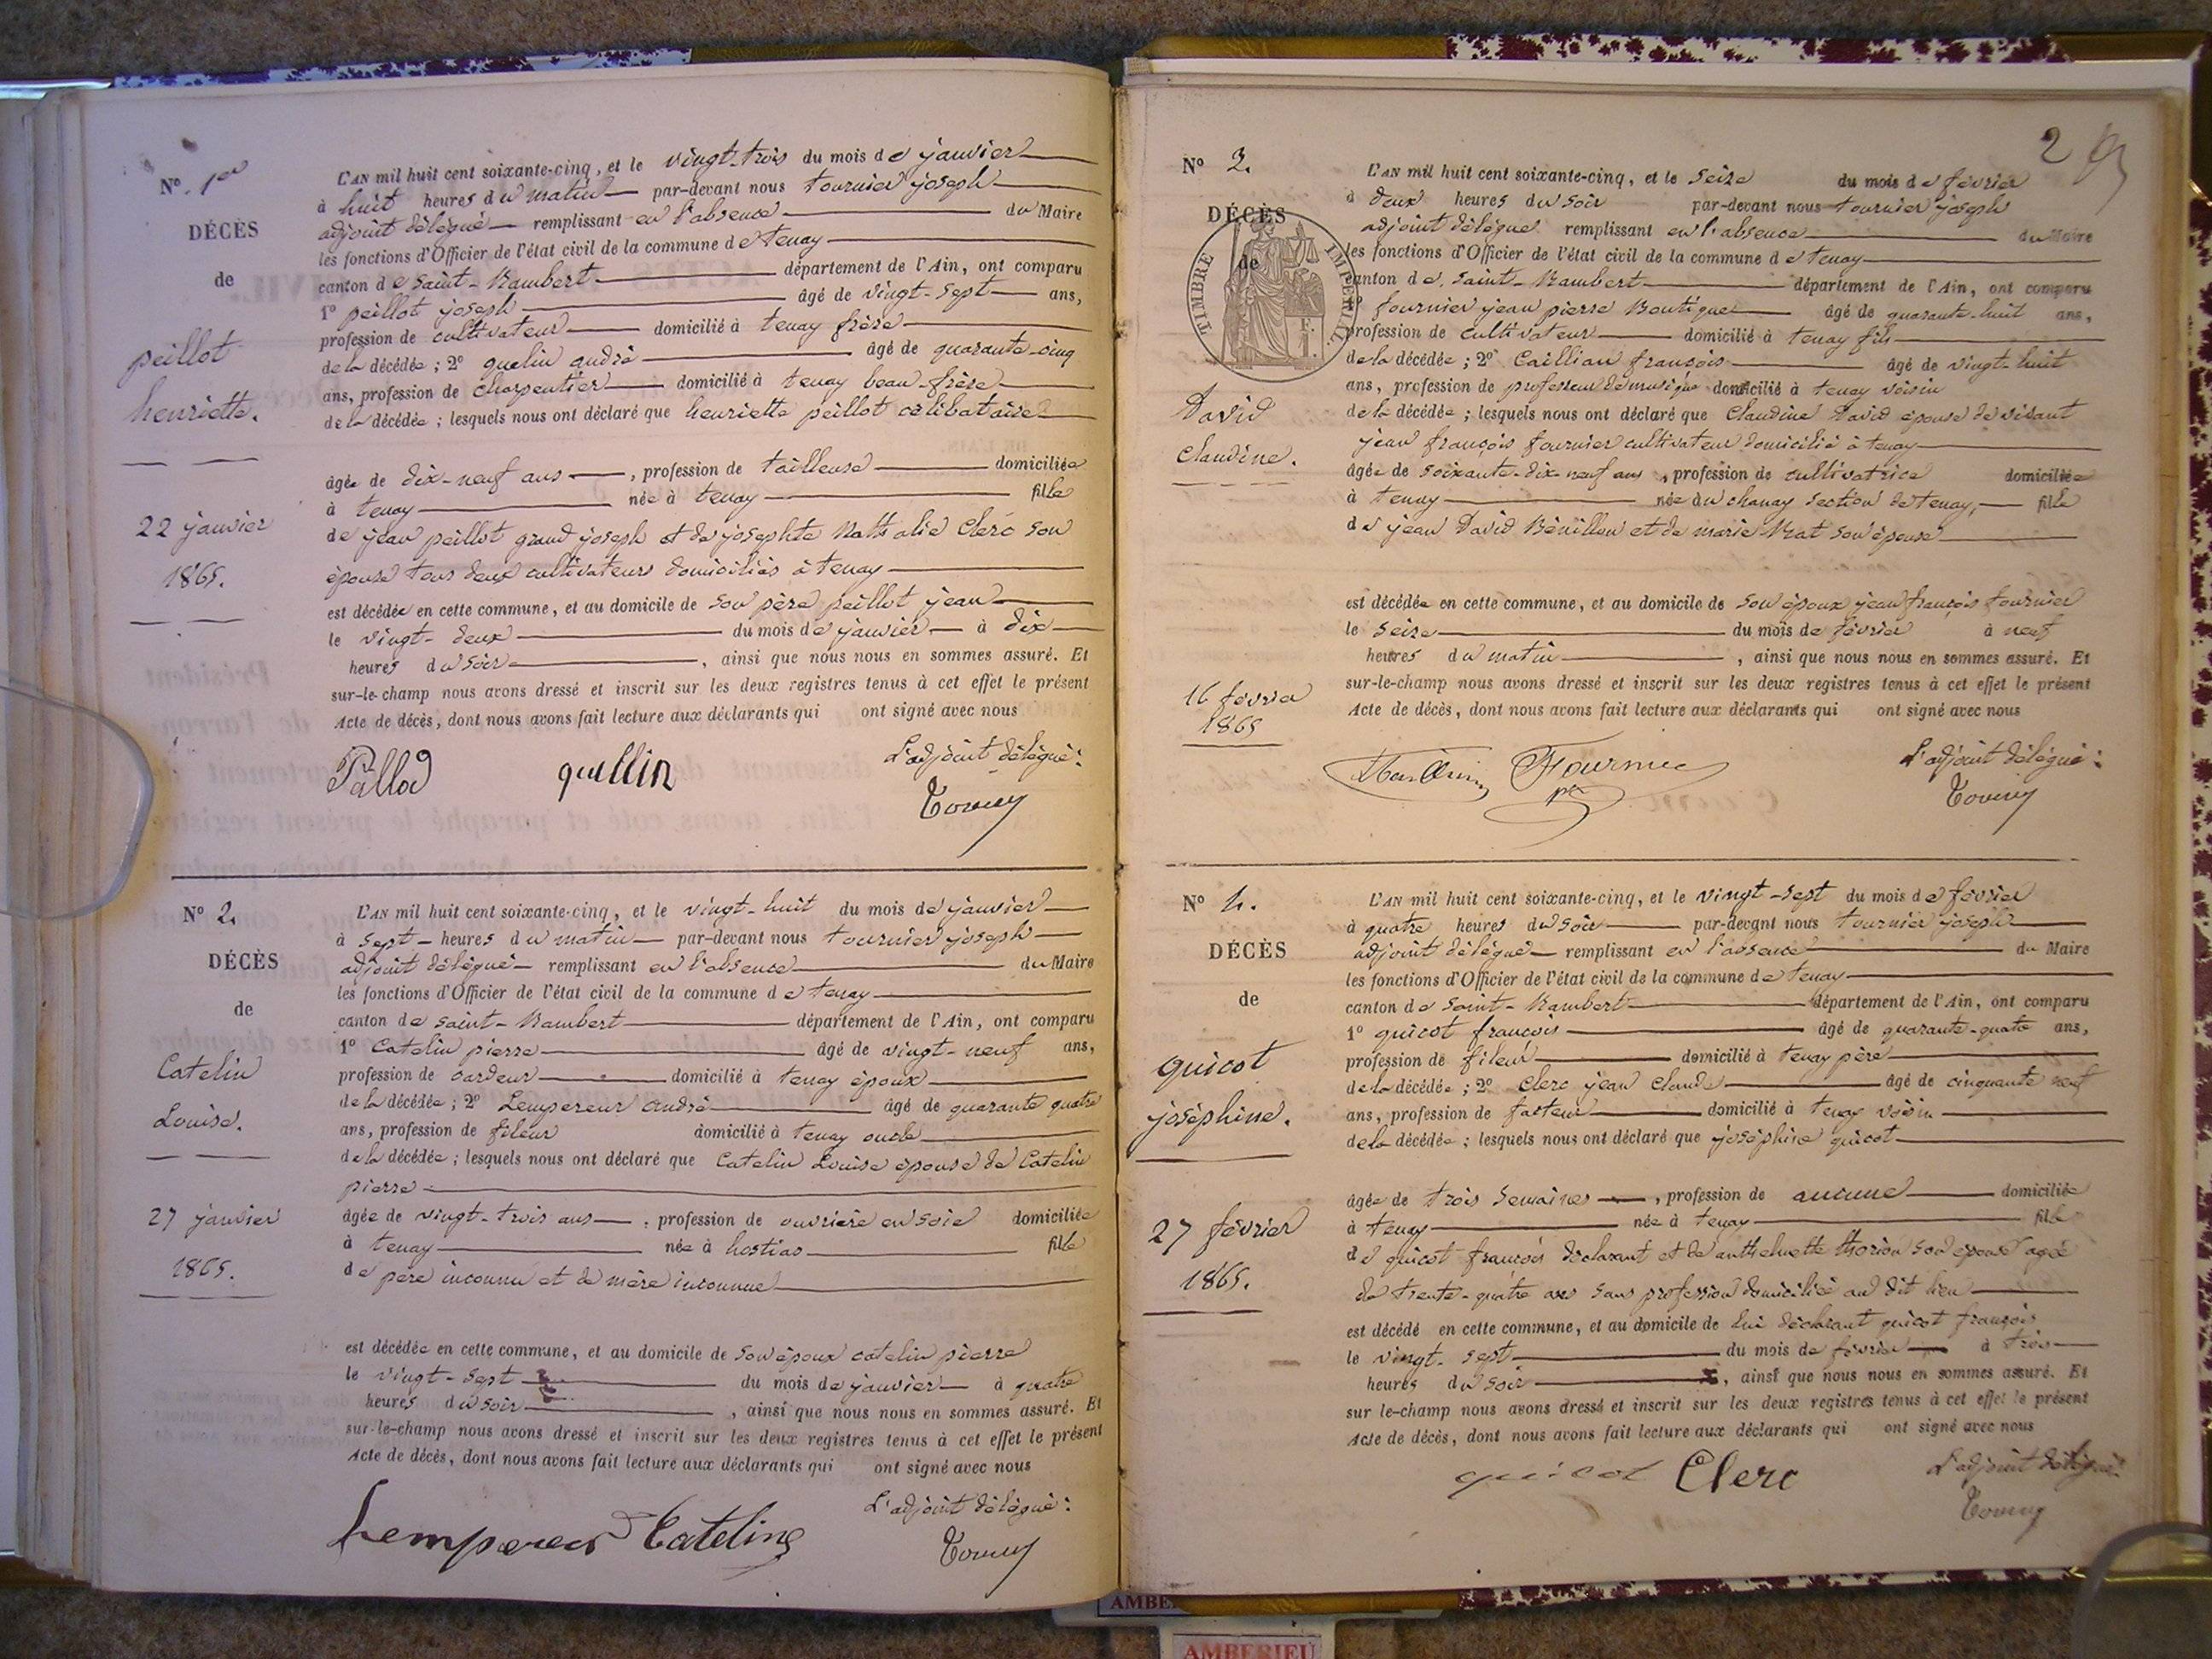 N° 1er
DÉCÈS
de
peillot
henriette.
22 janvier
1865.
L'AN mil huit cent soixante-cinq, et le vingt-trois du mois de janvier
à huit heures du matin par-devant nous tournier joseph
adjoint délégué remplissant en l'absence du Maire
les fonctions d'Officier de l'état civil de la commune de tenay
canton de saint-Rambert département de l'Ain, ont comparu
1° peillot joseph âgé de vingt-sept ans,
profession de cultivateur domicilié à tenay frère
de la décédée ; 2° quelin andré âgé de quarante-cinq
ans, profession de charpentier domicilié à tenay beau-frère
de la décédée ; lesquels nous ont déclaré que henriette peillot célibataire
âgée de dix-neuf ans, profession de tailleuse domiciliée
à tenay née à tenay fille
de jean peillot grand joseph et de josephte Nathalie Clerc son
épouse tous deux cultivateurs domiciliés à tenay
est décédée en cette commune, et au domicile de son père peillot jean
le vingt-deux du mois de janvier à dix
heures du soir, ainsi que nous nous en sommes assuré. Et
sur-le-champ nous avons dressé et inscrit sur les deux registres tenus à cet effet le présent
Acte de décès, dont nous avons fait lecture aux déclarants qui ont signé avec nous
L'adjoint délégué :
quellin
N° 2.
DÉCÈS
de
Catelin
Louise.
27 janvier
1865.
L'AN mil huit cent soixante-cinq, et le vingt-huit du mois de janvier
à sept heures du matin par-devant nous tournier joseph
adjoint délégué remplissant en l'absence du Maire
les fonctions d'Officier de l'état civil de la commune de tenay
canton de saint-Rambert département de l'Ain, ont comparu
1° Catelin pierre âgé de vingt-neuf ans,
profession de cardeur domicilié à tenay époux
de la décédée ; 2° Lempereur andré âgé de quarante quatre
ans, profession de fileur domicilié à tenay oncle
de la décédée ; lesquels nous ont déclaré que Catelin Louise épouse de Catelin
pierre
âgée de vingt-trois ans, profession de ouvrière en soie domiciliée
à tenay née à hostias fille
de père inconnu et de mère inconnue
est décédée en cette commune, et au domicile de son époux catelin pierre
le vingt-sept du mois de janvier à quatre
heures du soir, ainsi que nous nous en sommes assuré. Et
sur-le-champ nous avons dressé et inscrit sur les deux registres tenus à cet effet le présent
Acte de décès, dont nous avons fait lecture aux déclarants qui ont signé avec nous
L'adjoint délégué :
Lempereur Cateling
2
N° 3.
DÉCÈS
de
TIMBRE IMPÉRIAL.
David
Claudine.
16 févrer
1865
L'AN mil huit cent soixante-cinq, et le seize du mois de février
à deux heures du soir par-devant nous tournier joseph
adjoint délégué remplissant en l'absence du Maire
les fonctions d'Officier de l'état civil de la commune de tenay
canton de saint-Rambert département de l'Ain, ont comparu
1° fournier jean pierre âgé de quarante-huit ans,
profession de cultivateur domicilié à tenay fils
de la décédée ; 2° françois âgé de vingt-huit
ans, profession de professeur de musique domicilié à tenay voisin
de la décédée ; lesquels nous ont déclaré que Claudine David épouse de
jean françois fournier cultivateur domicilié à tenay
âgée de soixante-dix-neuf ans, profession de cultivatrice domiciliée
à tenay née au chanay section de tenay, fille
de jean David et de marie son épouse
est décédée en cette commune, et au domicile de son époux jean françois fournier
le seize du mois de février à neuf
heures du matin, ainsi que nous nous en sommes assuré. Et
sur-le-champ nous avons dressé et inscrit sur les deux registres tenus à cet effet le présent
Acte de décès, dont nous avons fait lecture aux déclarants qui ont signé avec nous
L'adjoint délégué :
N° 4.
DÉCÈS
de
quicot
joséphine.
27 février
1865.
L'AN mil huit cent soixante-cinq, et le vingt-sept du mois de février
à quatre heures du soir par-devant nous tournier joseph
adjoint délégué remplissant en l'absence du Maire
les fonctions d'Officier de l'état civil de la commune de tenay
canton de saint-Rambert département de l'Ain, ont comparu
1° quicot françois âgé de quarante-quatre ans,
profession de fileur domicilié à tenay père
de la décédée ; 2° Clerc jean Claude âgé de cinquante neuf
ans, profession de facteur domicilié à tenay voisin
de la décédée ; lesquels nous ont déclaré que joséphine quicot
âgée de trois semaines, profession de aucune domiciliée
à tenay née à tenay fille
de quicot françois déclarant et de anthelmette son épouse agée
de trente-quatre ans sans profession domiciliée au dit lieu
est décédé en cette commune, et au domicile de lui déclarant quicot françois
le vingt-sept du mois de février à trois
heures du soir, ainsi que nous nous en sommes assuré. Et
sur le-champ nous avons dressé et inscrit sur les deux registres tenus à cet effet le présent
Acte de décès, dont nous avons fait lecture aux déclarants qui ont signé avec nous
quicot Clerc
L'adjoint délégué
AMBERIEU